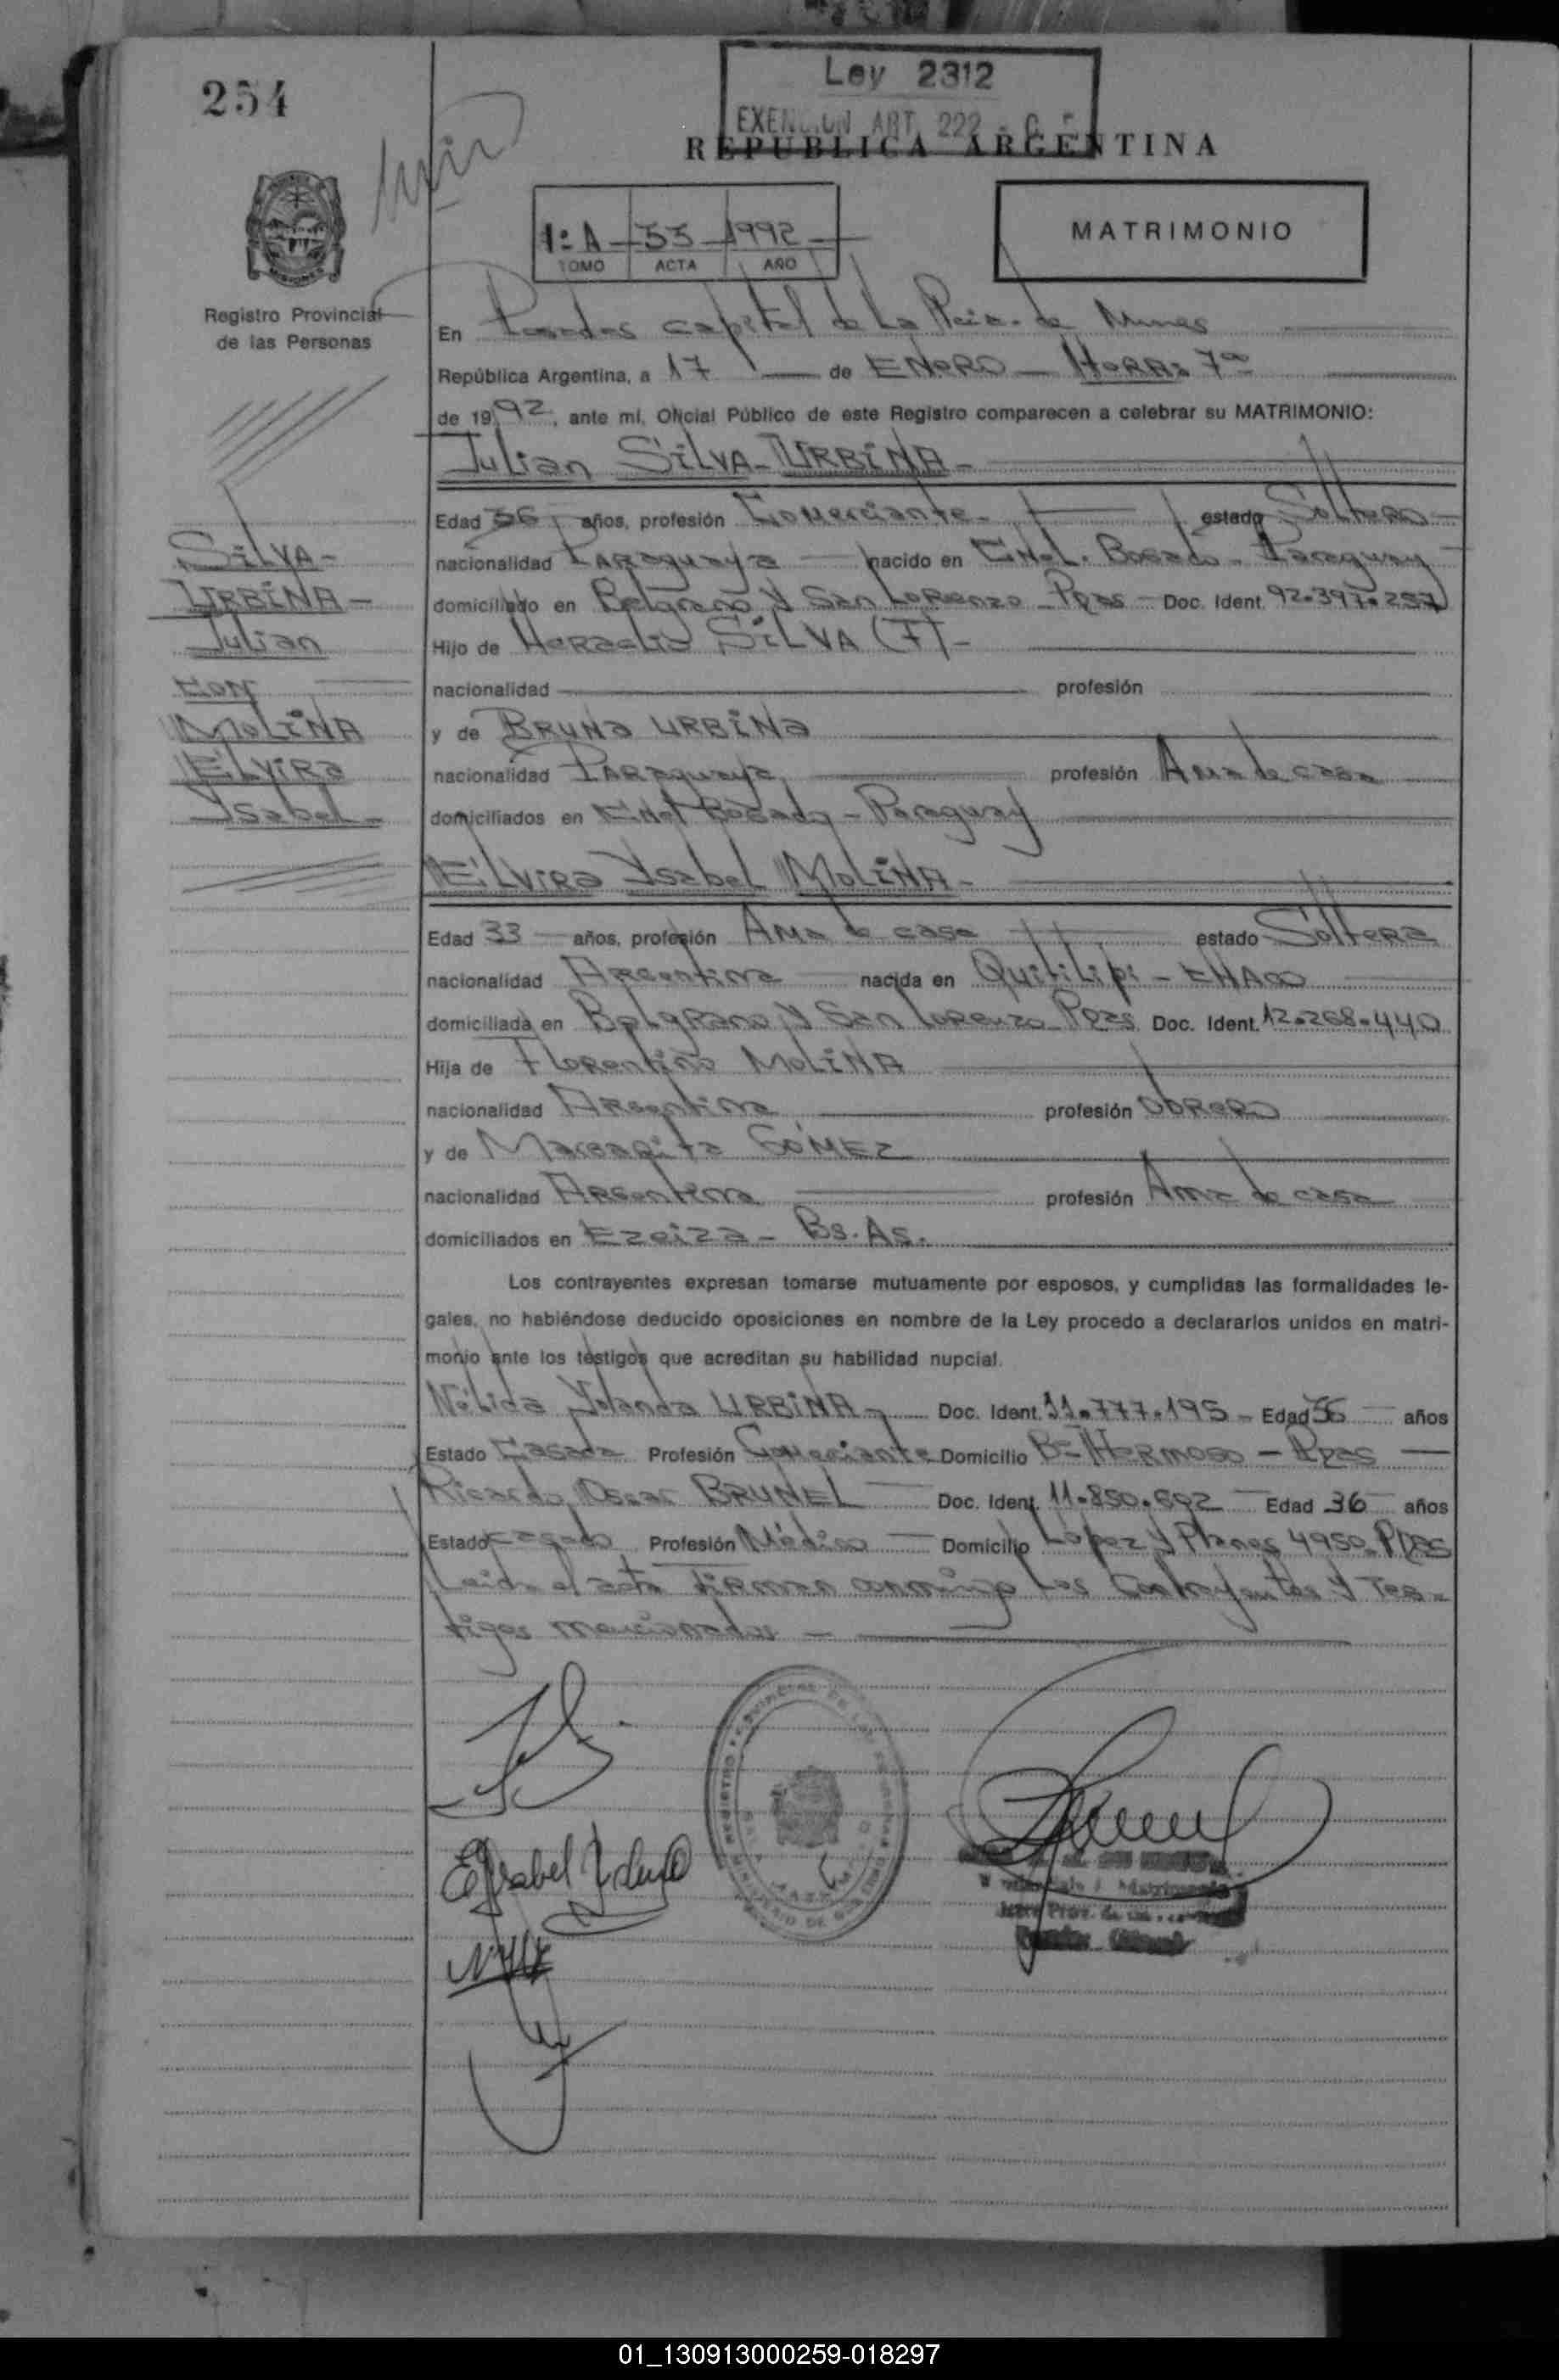 254
Ley 2312
EXENCION ART. 222
REPUBLICA ARGENTINA
1:A - 33 - 1992
TOMO ACTA AÑO
MATRIMONIO
Registro Provincial
de las Personas
En Posadas capital de La Pcia. de Mnes
República Argentina, a 17 de ENERO - HORA: 7
de 1992, ante mí, Oficial Público de este Registro comparecen a celebrar su MATRIMONIO:
Julian SILVA-URBINA-
Edad 36 años, profesión Comerciante- estado Soltero
nacionalidad Paraguaya nacido en Cnel. Bogado - Paraguay
domiciliado en Belgrano y San Lorenzo - Pdas - Doc. Ident. 92.397.297
Hijo de SILVA (F)-
nacionalidad profesión
y de Bruna URBINA
nacionalidad Paraguaya profesión Ama de casa
domiciliados en Cnel Bogado - Paraguay
SILVA-
URBINA-
Julian
con
MOLINA
Elvira
Ysabel-
Elvira Ysabel MOLINA-
Edad 33 años, profesión Ama de casa estado Soltera
nacionalidad Argentina nacida en Quitilipi - CHACO
domiciliada en Belgrano y San Lorenzo Pdas Doc. Ident. 12.268.440
Hija de Florentino MOLINA
nacionalidad Argentina profesión Obrero
y de Margarita GÓMEZ
nacionalidad Argentina profesión Ama de casa
domiciliados en Ezeiza - Bs. As.
Los contrayentes expresan tomarse mutuamente por esposos, y cumplidas las formalidades le-
gales, no habiéndose deducido oposiciones en nombre de la Ley procedo a declararlos unidos en matri-
monio ante los testigos que acreditan su habilidad nupcial.
Nélida Yolanda URBINA - Doc. Ident. 11.777.195 - Edad 36 años
Estado Casada Profesión Comerciante Domicilio Bº Hermoso - Pdas
Ricardo Oscar BRUNEL Doc. Ident. 11.850.692 Edad 36 años
Estado casado Profesión Médico Domicilio Lopez y Planes 4950 - Pdas
Leida el acta firman conmigo los Contrayentes y Tes-
tigos mencionados -
01_130913000259-018297